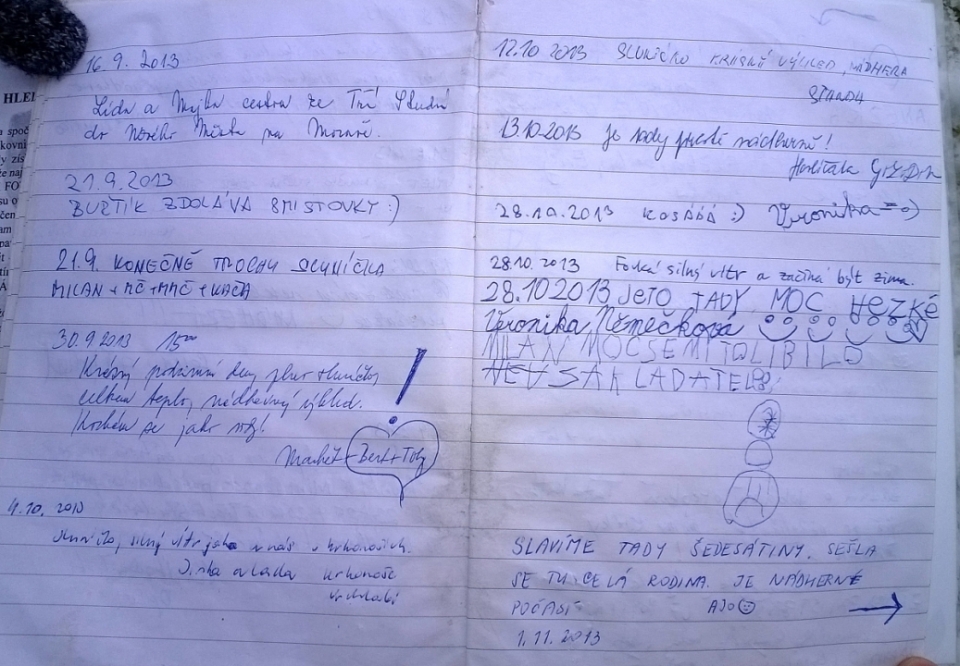 16. 9. 2013
Lída a Majka cestou ze Tří Studní
do Nového Města na Moravě.
21.9.2013
BUŘTÍK ZDOLÁVÁ 8MISTOVKY :)
21.9. KONEČNĚ TROCHU SLUNÍČKA
MILAN + MČ + MMČ + KÁČA
30.9 2013 15⁰⁰
Krásný podzimní den, plno sluníčka
celkem teplo, nádherný výhled.
Kochám se jako vždy!
Markét + Bert + Toby
4.10. 2013
silný vítr jako u nás v Krkonoších.
Jirka a Vlada Krkonoše
Vrchlabí
12.10 2013 SLUNÍČKO KRÁSNÝ VÝHLED, NÁDHERA
STANDA
13.10.2013 je tady prostě nádherně!
28.10.2013 KOSÁÁÁ :) Veronika =o)
28.10. 2013 Fouká silný vítr a začíná být zima.
28.10 2013 JETO TADY MOC HEZKÉ
Veronika Němečková
MILAN MOCSEMITOLIBILO
SLAVÍME TADY ŠEDESÁTINY. SEŠLA
SE TU CELÁ RODINA. JE NÁDHERNÉ
POČASÍ AJO
1.11.2013
HLE
spoč
kovní
zís
že naj
FO